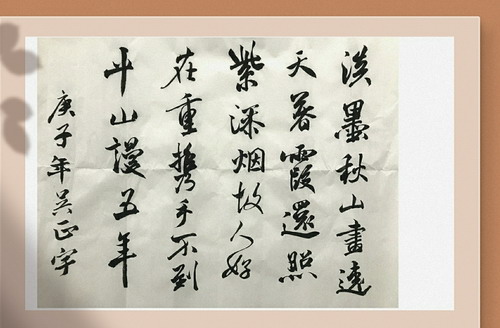 淡墨秋山畫遠
天暮霞還照
紫添烟故人好
在重攜手不到
平山謾五年
庚子年吴正字